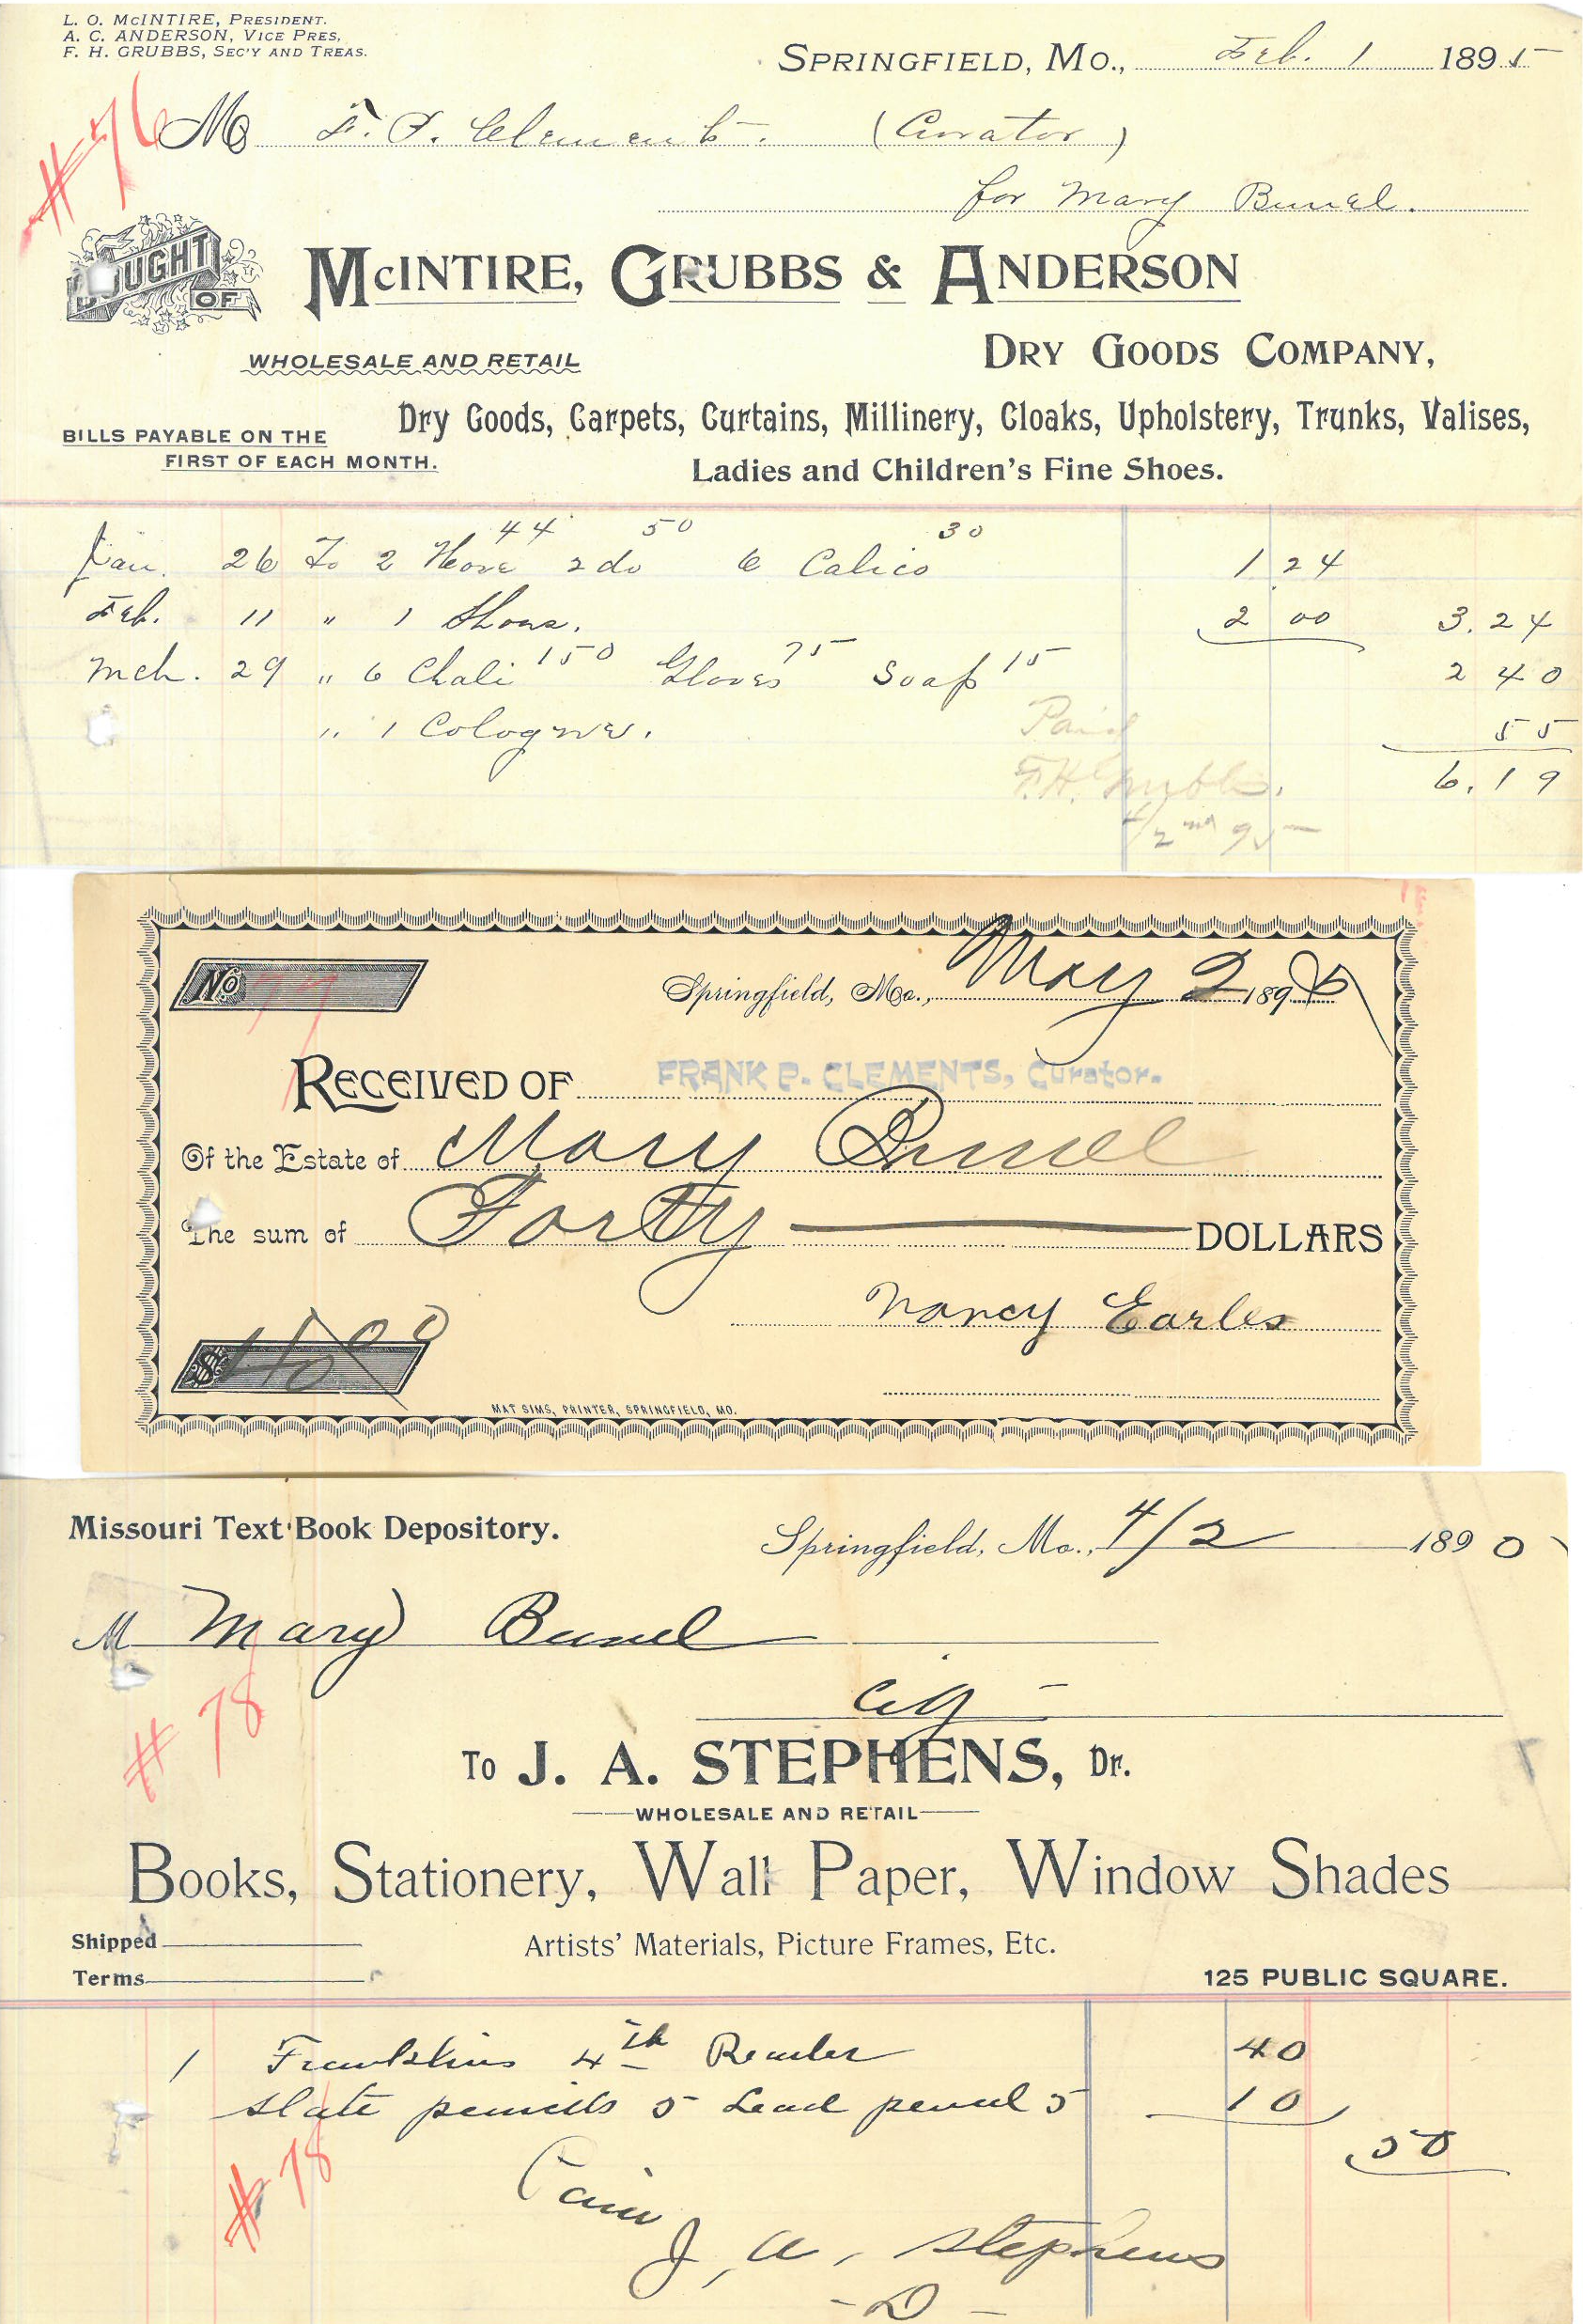 L. O. McINTIRE, PRESIDENT.
A. C. ANDERSON, VICE PRES,
F. H. GRUBBS, SEC'Y AND TREAS.
SPRINGFIELD, MO., Feb. 1 1895
#76
M F. P. Clement. (Curator)
for Mary Bunel.
BOUGHT OF
McINTIRE, GRUBBS & ANDERSON
WHOLESALE AND RETAIL
DRY GOODS COMPANY,
Dry Goods, Carpets, Curtains, Millinery, Cloaks, Upholstery, Trunks, Valises,
BILLS PAYABLE ON THE
FIRST OF EACH MONTH.
Ladies and Children's Fine Shoes.
Jan. 26 To 2 Hose 44 2 do 50 6 Calico 30 1 24
Feb. 11 " 1 Shoes. 2 00 3.24
Mch. 29 " 6 Chali 150 Gloves 75 Soap 15 2 40
" 1 Cologne. 55
Paid
6.19
F.H. Grubbs.
4/2nd 95
No 77
Springfield, Mo., May 2 189
RECEIVED OF FRANK P. CLEMENTS, Curator.
Of the Estate of Mary Bunel
The sum of Forty DOLLARS
Nancy Earles
$ 40 00
MAT SIMS, PRINTER, SPRINGFIELD, MO.
Missouri Text Book Depository.
Springfield, Mo., 4/2 189
M Mary Bunel
City
#78
To J. A. STEPHENS, Dr.
WHOLESALE AND RETAIL
Books, Stationery, Wall Paper, Window Shades
Shipped
Artists' Materials, Picture Frames, Etc.
Terms
125 PUBLIC SQUARE.
1 Franklins 4th Reader 40
slate pencils 5 Lead pencil 5 10
50
#78
Paid
J. A. Stephens
- D -